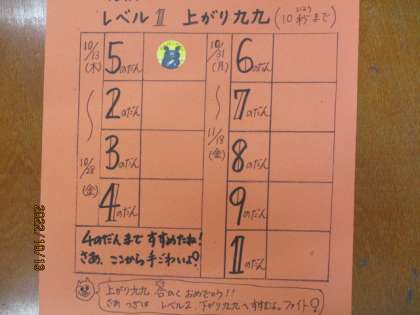 レベル1 上がり九九(10秒まで)
びょう
10/13
(木)
〜
10/28
(金)
5のだん
2のだん
3のだん
4のだん
10/31
(月)
〜
11/18
(金)
6のだん
7のだん
8のだん
9のだん
1のだん
4のだんまですすめたね!
さあ、ここから手ごわいよ?
上がり九九 おめでとう!!
さあ つぎは レベル2、下がり九九へすすむよ。ファイト
2022/10/13